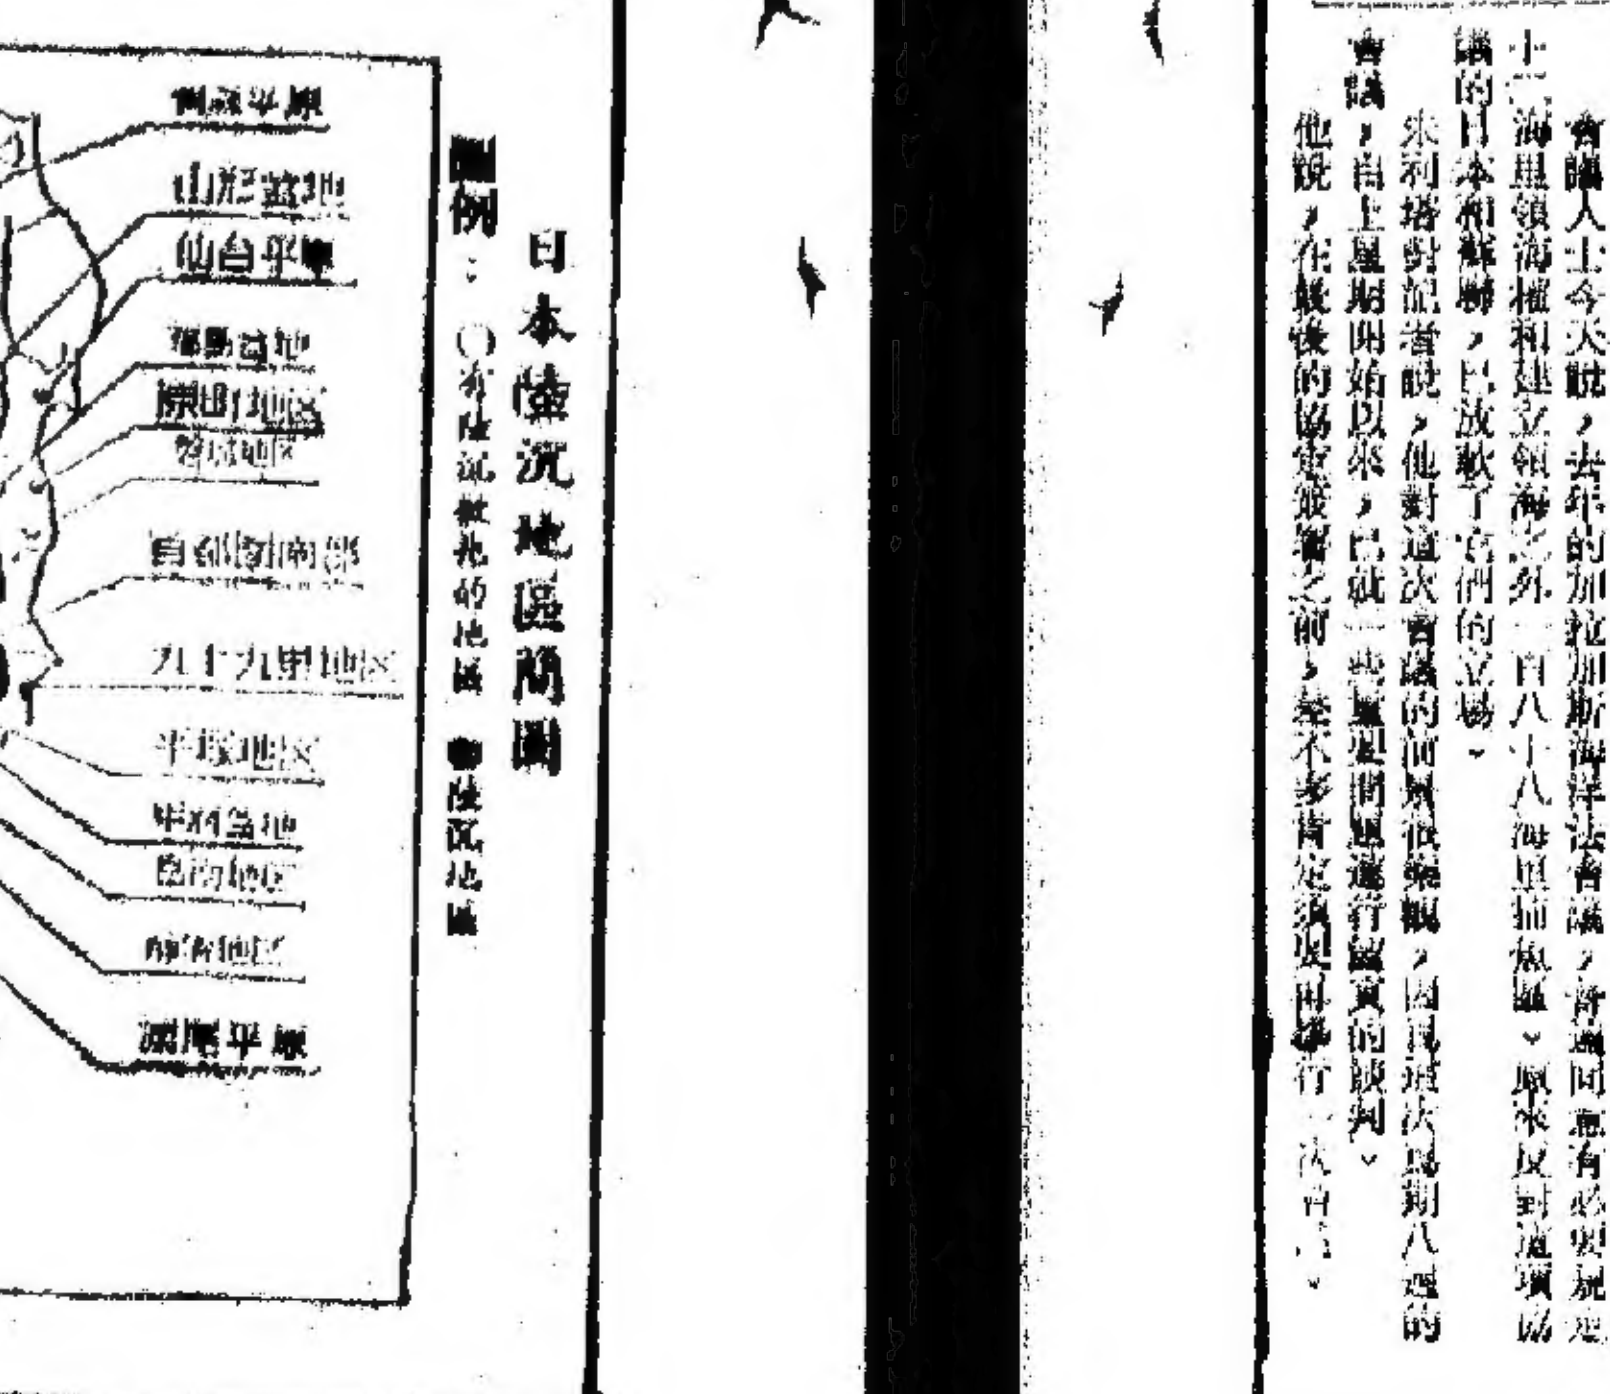 會議人士今天說，去年的加拉加斯海洋法會議，普遍同意有必要規定
十二海里領海權和建立領海之外一百八十八海里捕魚區。原來反對這項協
議的日本和蘇聯，已放軟了它們的立場。
來利塔對記者說，他對這次會議的前景很樂觀，因為這次為期八週的
會議，自上星期開始以來，已就一些重要問題進行認真的談判。
他說，在最後的協定簽署之前，差不多肯定須要再舉行一次會
日本陸沉地區簡圖
圖例：○有陸沉徵兆的地區 ●陸沉地區
山形盆地
仙台平
福島盆地
原町地区
磐城地区
首都圏南部
九十九里地区
平塚地区
甲府盆地
濃尾平原